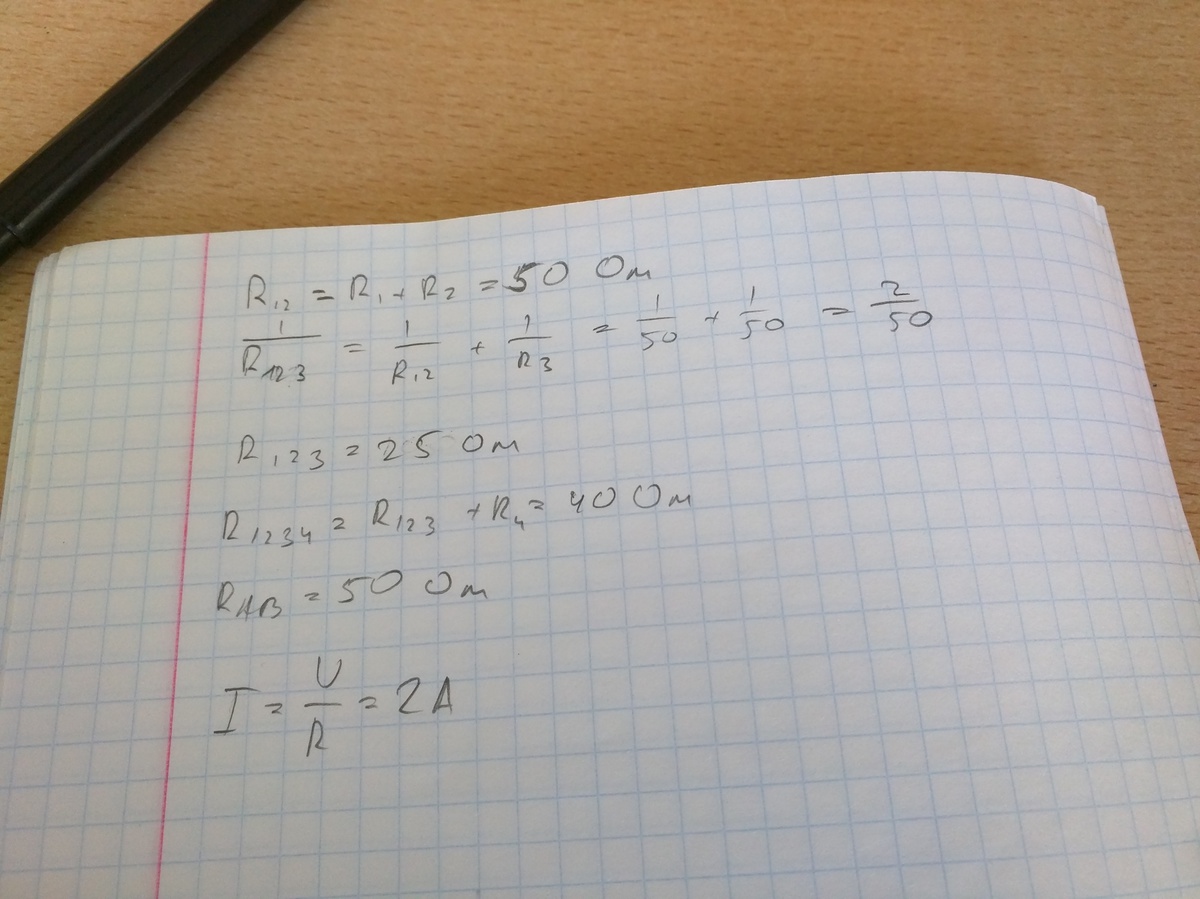 R₁₂ = R₁ + R₂ = 50 Ом
1/R₁₂₃ = 1/R₁₂ + 1/R₃ = 1/50 + 1/50 = 2/50
R₁₂₃ = 25 Ом
R₁₂₃₄ = R₁₂₃ + R₄ = 40 Ом
R_AB = 50 Ом
I = U/R = 2A